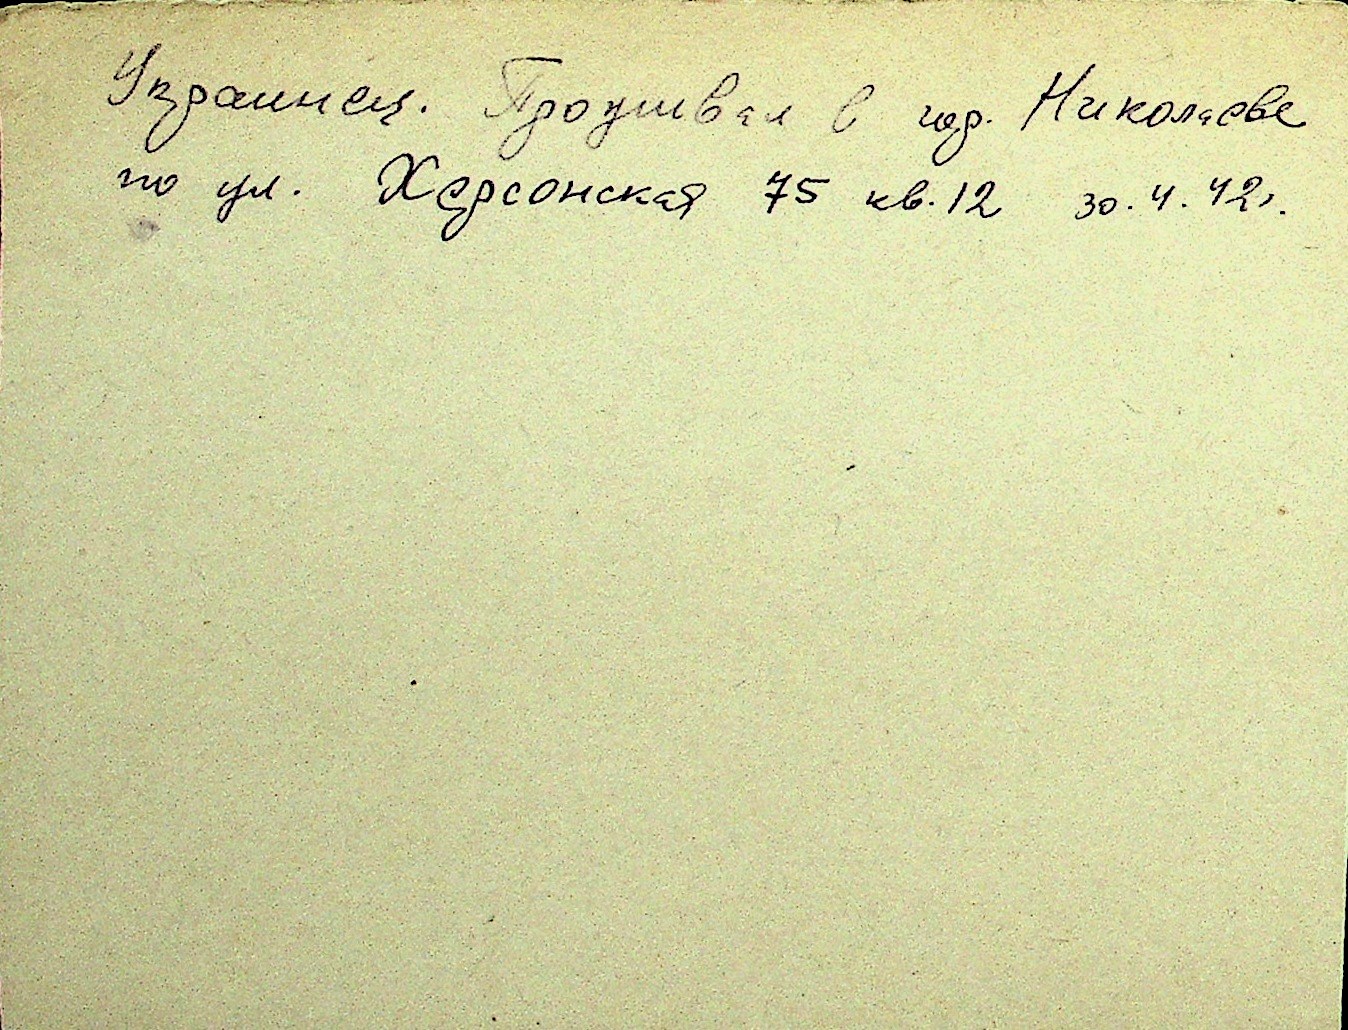 Украинец. Проживал в гор. Николаеве
по ул. Херсонская 75 кв. 12 30.4.42г.